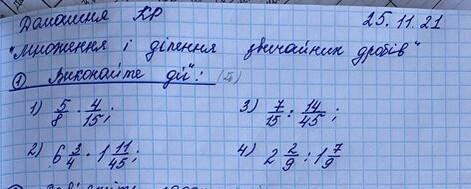 Домашня КР 25.11.21
"Множення і ділення звичайних дробів"
① Виконайте дії":
1) 5/8 · 4/15; 3) 7/15 : 14/45;
2) 6 3/4 · 1 11/45; 4) 2 2/9 : 1 7/9